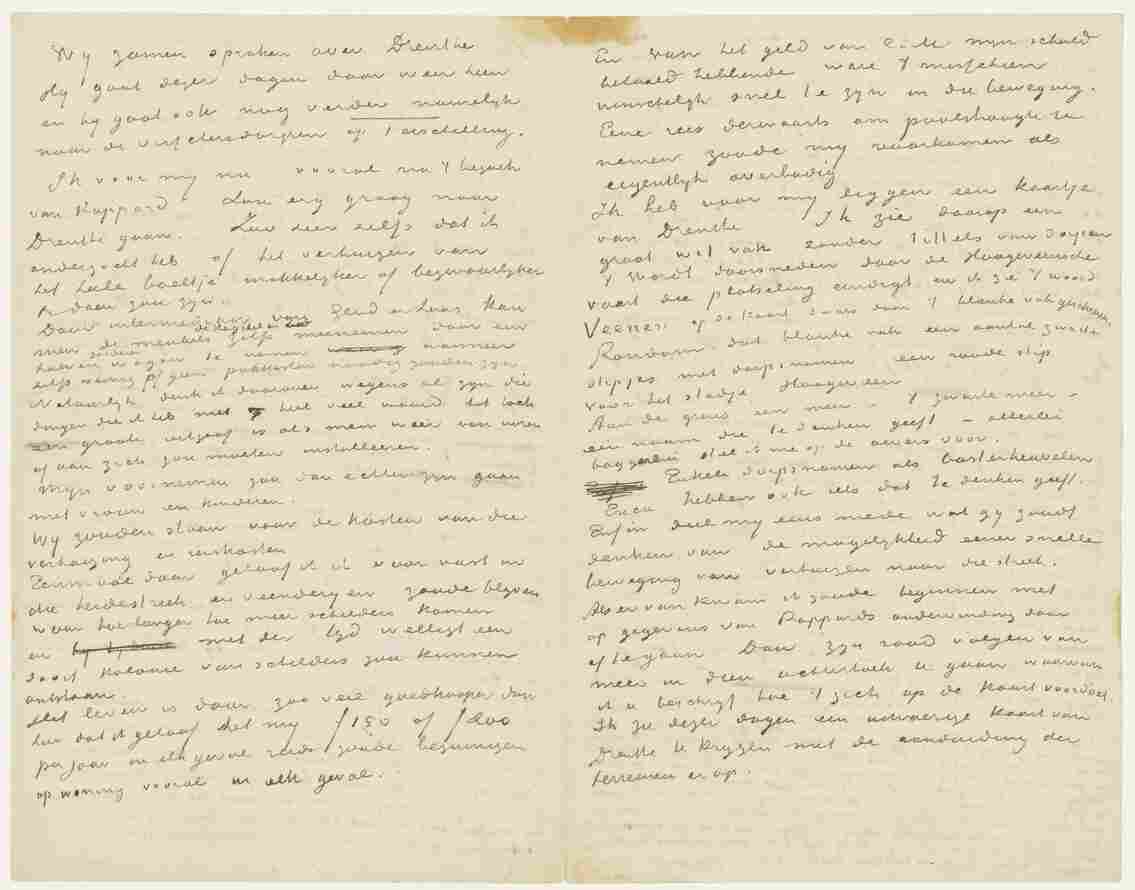 Wy zamen spraken over Drenthe
Hy gaat dezer dagen daar weer heen
en hy gaat ook nog verder namelyk
naar de visschersdorpjes op Terschelling.
Ik voor my nu vooral na 't bezoek
van Rappard zou erg graag naar
Drenthe gaan. Zoo zeer zelfs dat ik
onderzocht heb of het verhuizen van
het heele boeltje makkelyker of bezwaarlyker
te doen zou zyn.
Door intermediair van Gend en Loos kan
men de meubels zelfs meenemen door een
halven wagon te nemen wanneer
zelfs weinig of geen pakkisten noodig zouden zyn
Natuurlyk denk ik daarover wegens al zyn die
dingen die ik heb niet heel veel waard het toch
een groote uitgaaf is als men weer van voren
af aan zich zou moeten installeeren.
Myn voornemen zou dan echter zyn gaan
met vrouw en kinderen.
Wy zouden staan voor de kosten van die
verhuizing en reiskosten
Eenmaal daar geloof ik ik voor vast in
die heidestreek en veendery en zoude blyven
waar hoe langer hoe meer schilders komen
en met der tyd welligt een
soort kolonie van schilders zou kunnen
ontstaan.
Het leven is daar zoo veel goedkooper dan
hier dat ik geloof het my f150 of f200
per jaar in elk geval reeds zoude bezuinigen
op woning vooral in elk geval.
En van het geld van C. M. myn schuld
betaald hebbende ware 't misschien
wenschelyk snel te zyn in die beweging.
Eene reis derwaarts om poolshoogte te
nemen zoude my voorkomen als
eigentlyk overbodig
Ik heb voor my liggen een kaartje
van Drenthe. Ik zie daarop een
groot wit vak zonder tittels van dorpen
't wordt doorsneden door de Hoogeveensche
vaart die plotseling eindigt en ik zie 't woord
Veenen op de kaart dwars door 't blanke vak geschreven.
Rondom dat blanke vak een aantal zwarte
stipjes met dorpsnamen een roode stip
voor het stadje Hoogeveen
Aan de grens een meer – 't zwarte meer –
een naam die te denken geeft – allerlei
baggerlui stel ik me op de oevers voor.
Enkele dorpsnamen als Oosterheuvelen
Erica hebben ook iets dat te denken geeft.
Enfin deel my eens mede wat gy zoudt
denken van de mogelykheid eener snelle
beweging van verhuizen naar die streek.
Als er van kwam ik zoude beginnen met
op gegevens van Rappards ondervinding daar
af te gaan Dan zyn raad volgen van
meer in dien achterhoek te gaan waarvan
ik u beschryf hoe 't zich op de kaart voordoet.
Ik zie dezer dagen een uitvoerige kaart van
Drenthe te krygen met de aanduiding der
terreinen er op.